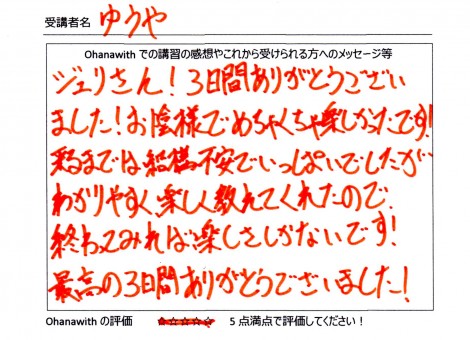 受講者名 ゆうや
Ohanawith での講習の感想やこれから受けられる方へのメッセージ等
ジェリさん！3日間ありがとうござい
ました！お陰様でめちゃくちゃ楽しかったです！
来るまでは結構不安でいっぱいでしたが
わかりやすく、楽しく教えてくれたので
終わってみれば楽しさしかないです！
最高の3日間ありがとうございました！
Ohanawith の評価 ☆☆☆☆☆ 5 点満点で評価してください！